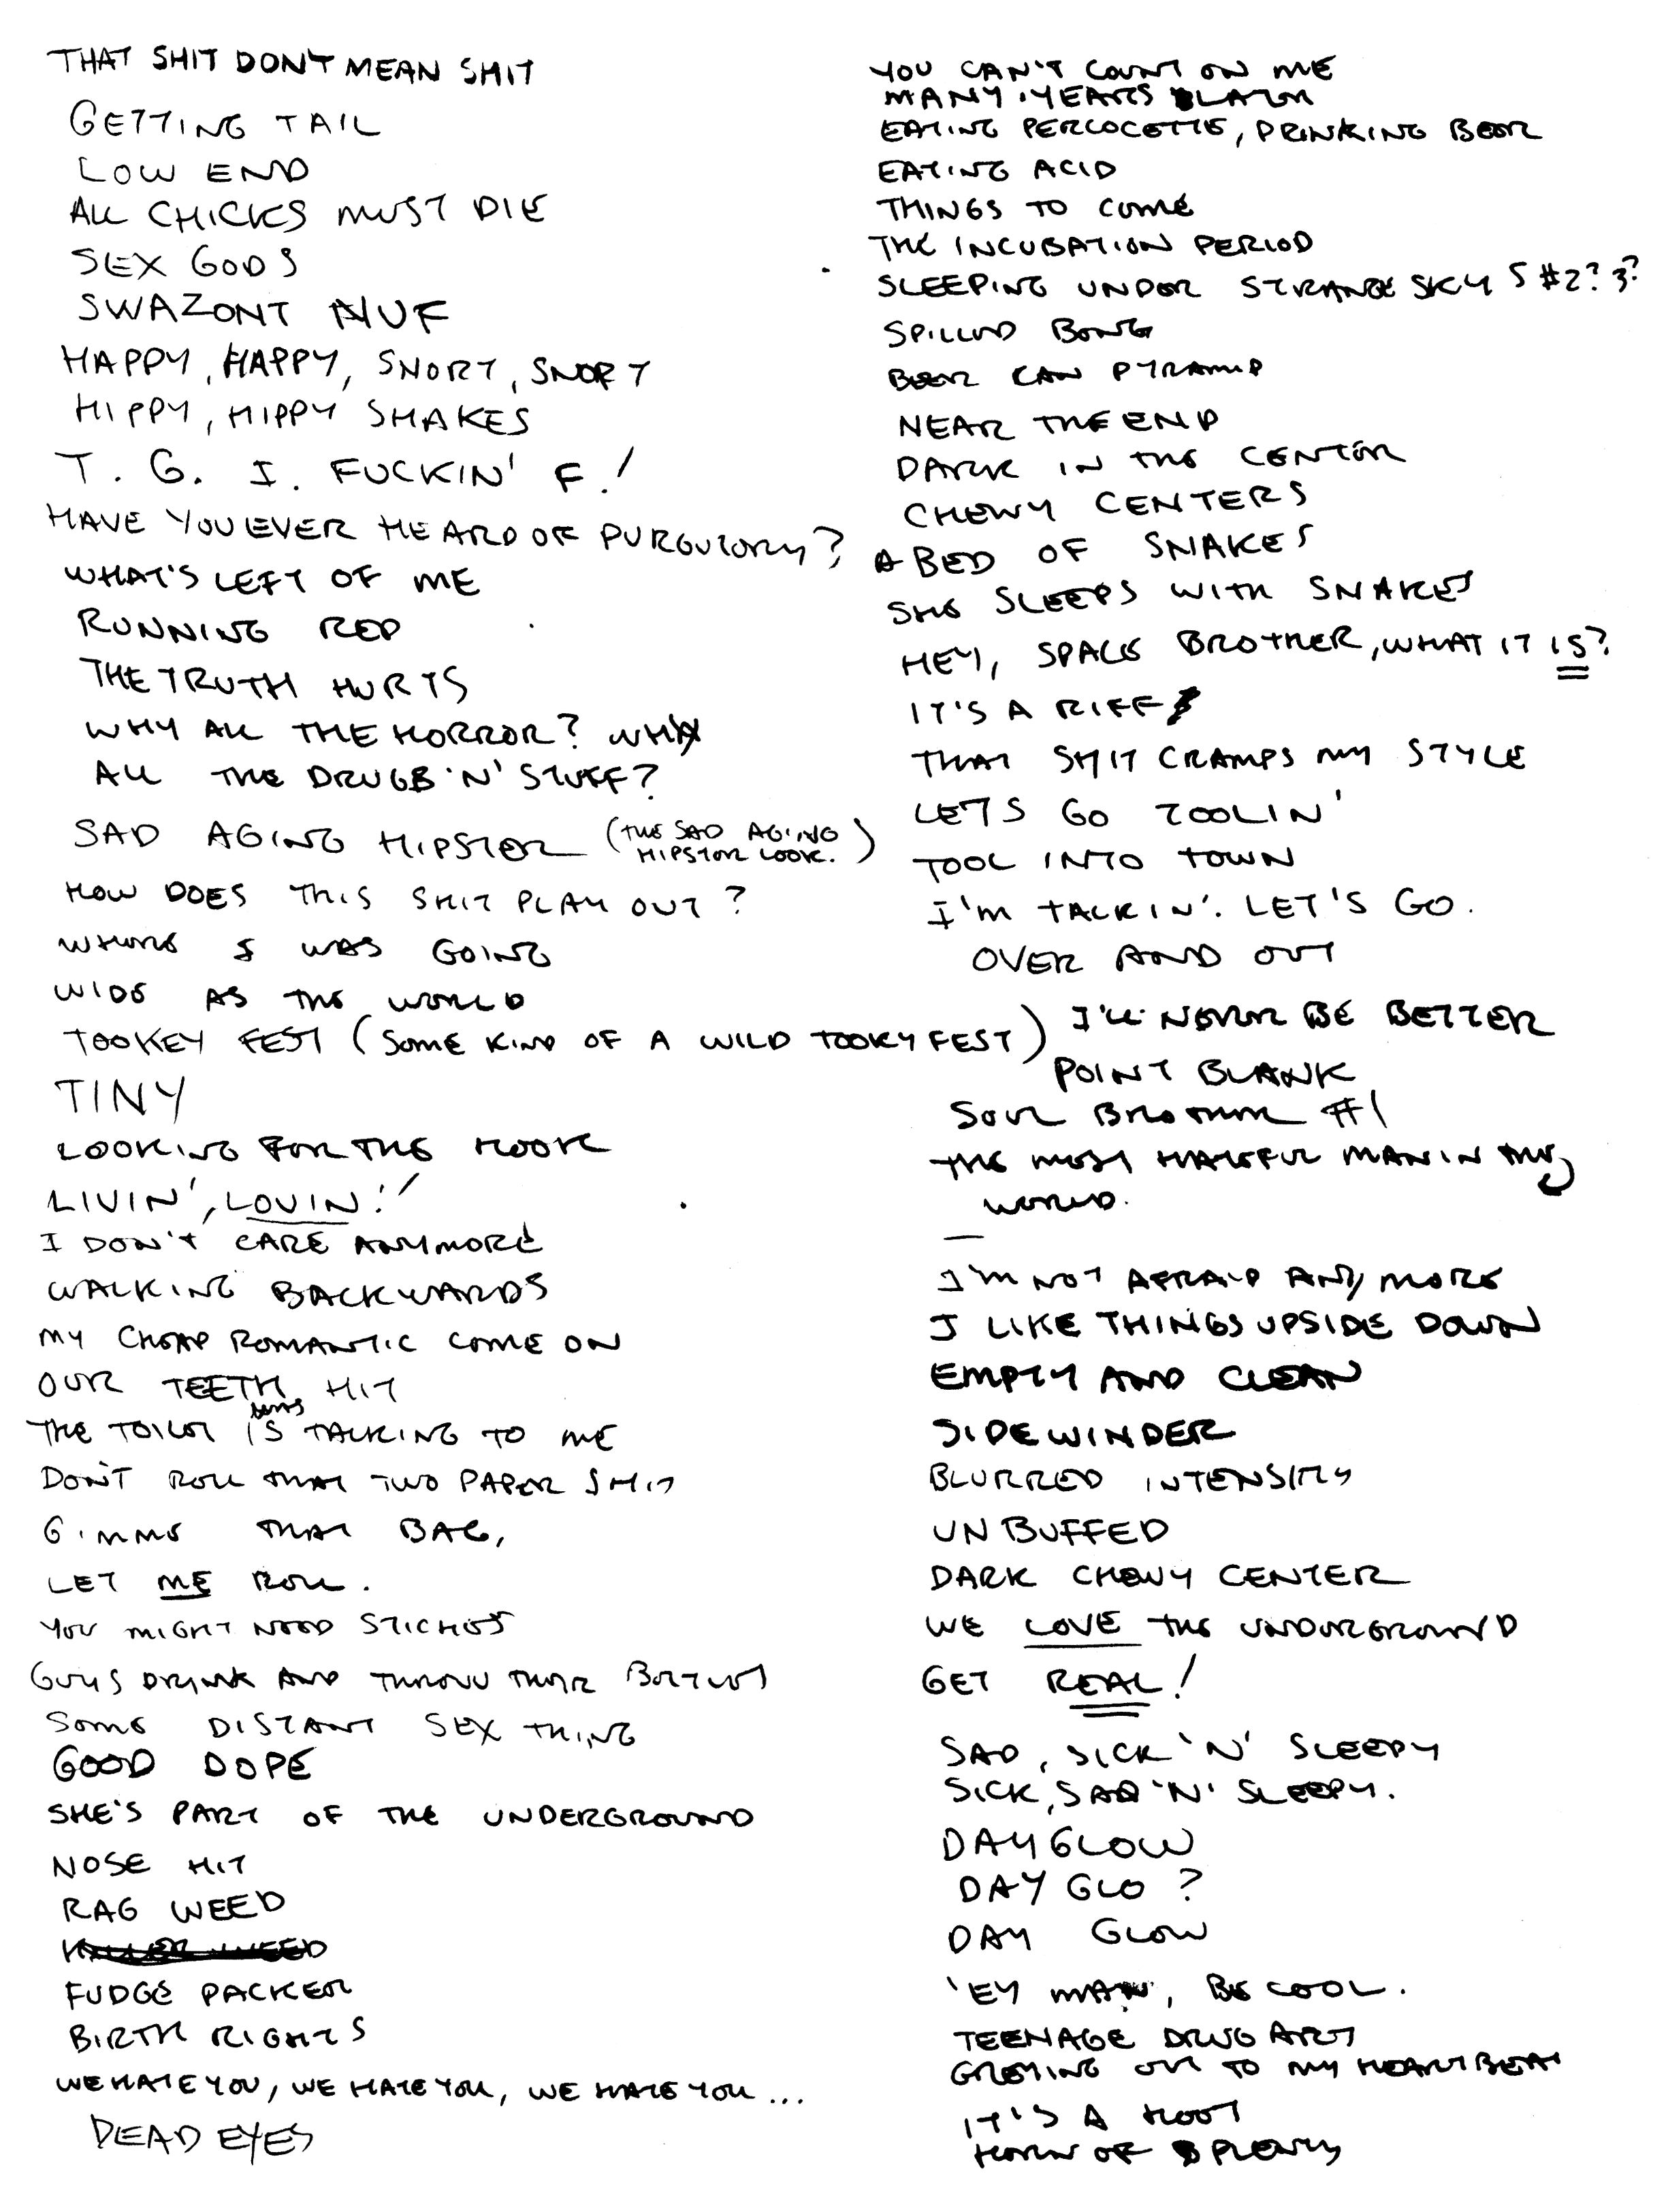 THAT SHIT DON'T MEAN SHIT
GETTING TAIL
LOW END
ALL CHICKS MUST DIE
SEX GODS
SWAZONT NUF
HAPPY, HAPPY, SNORT, SNORT
HIPPY, HIPPY SHAKES
T. G. I. FUCKIN' F.!
HAVE YOU EVER HEARD OF PURGUTORY?
WHAT'S LEFT OF ME
RUNNING RED
THE TRUTH HURTS
WHY ALL THE HORROR? WHY
ALL THE DRUGS 'N' STUFF?
SAD AGING HIPSTER (THE SAD AGING
HIPSTER LOOK.)
HOW DOES THIS SHIT PLAY OUT?
WHERE I WAS GOING
WIDE AS THE WORLD
TOOKEY FEST (SOME KIND OF A WILD TOOKY FEST)
TINY
LOOKING FOR THE HOOK
LIVIN', LOVIN'!
I DON'T CARE ANYMORE
WALKING BACKWARDS
MY CHEAP ROMANTIC COME ON
OUR TEETH HIT
THE TOILET IS TALKING TO ME
DON'T ROLL THAT TWO PAPER SHIT
GIMME THAT BAG,
LET ME ROLL.
YOU MIGHT NEED STICHES
GUYS DRINK AND THROW THEIR BOTTLES
SOME DISTANT SEX THING
GOOD DOPE
SHE'S PART OF THE UNDERGROUND
NOSE HIT
RAG WEED
KILLER WEED
FUDGE PACKER
BIRTH RIGHTS
WE HATE YOU, WE HATE YOU, WE HATE YOU...
DEAD EYES
YOU CAN'T COUNT ON ME
MANY YEARS LATER
EATING PERCOCETTE, DRINKING BEER
EATING ACID
THINGS TO COME
THE INCUBATION PERIOD
SLEEPING UNDER STRANGE SKYS #2? 3?
SPILLED BONG
BEER CAN PYRAMID
NEAR THE END
DARK IN THE CENTER
CHEWY CENTERS
A BED OF SNAKES
SHE SLEEPS WITH SNAKES
HEY, SPACE BROTHER, WHAT IT IS?
IT'S A RIFF
THAT SHIT CRAMPS MY STYLE
LETS GO TOOLIN'
TOOL INTO TOWN
I'M TALKIN'. LET'S GO.
OVER AND OUT
I'LL NEVER BE BETTER
POINT BLANK
SOUL BROTHER #1
THE MOST HATEFUL MAN IN THE
WORLD.
—
I'M NOT AFRAID ANY MORE
I LIKE THINGS UPSIDE DOWN
EMPTY AND CLEAN
SIDEWINDER
BLURRED INTENSITY
UNBUFFED
DARK CHEWY CENTER
WE LOVE THE UNDERGROUND
GET REAL!
SAD, SICK 'N' SLEEPY
SICK, SAD 'N' SLEEPY.
DAYGLOW
DAY GLO?
DAY GLOW
'EY MAN, BE COOL.
TEENAGE DRUG ART
GROOVING OUT TO MY HEARTBEAT
IT'S A HOOT
HORN OF PLENTY